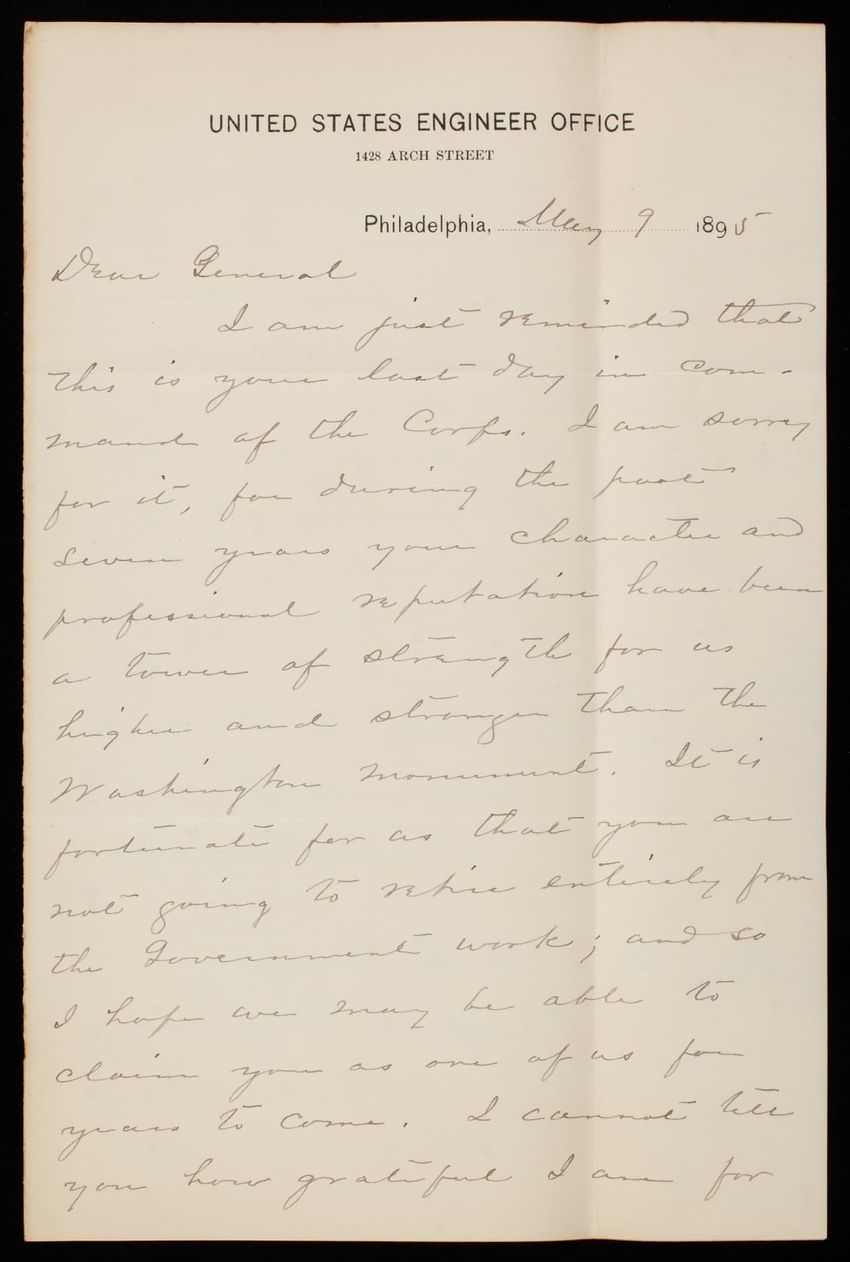 UNITED STATES ENGINEER OFFICE
1428 ARCH STREET
Philadelphia, May 9 1895
Dear General
I am just reminded that
this is your last day in com-
mand of the Corps. I am sorry
for it, for during the past
seven years your character and
professional reputation have been
a tower of strength for us
higher and stronger than the
Washington monument. It is
fortunate for us that you are
not going to retire entirely from
the Government work; and so
I hope we may be able to
claim you as one of us for
years to come. I cannot tell
you how grateful I am for